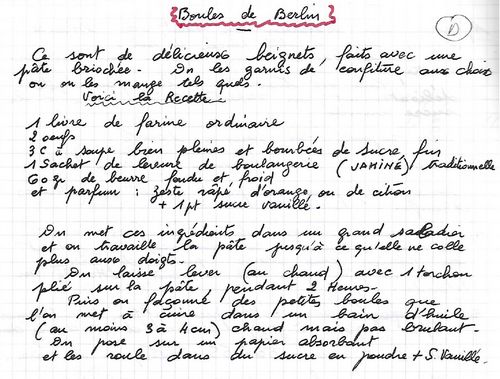 Boules de Berlin
D
Ce sont de délicieuse beignets, faits avec une
pâte brischée. On les garnis de confiture aux choix
ou on les mange tels quels.
Voici la Recette
1 livre de farine ordinaire
2 oeufs
3 C à soupe bien pleines et bourbées de sucre fin
1 Sachet de levure de boulangerie (JAMINE) traditionnelle
60 gr de beurre fondu et froid
et parfum : zeste râpé d'orange, ou de citron
+ 1 pt sucre vanillé.
On met ces ingrédients dans un grand saladier
et on travaille la pâte jusqu'à ce qu'elle ne colle
plus aux doigts.
On laisse lever (au chaud) avec 1 torchon
plié sur la pâte, pendant 2 Heures.
Puis on façonne des petites boules que
l'on met à cuire dans un bain d'huile
(au moins 3 à 4 cm) chaud mais pas brulant.
On pose sur un papier absorbant
et les roule dans du sucre en poudre + S. Vanillé.